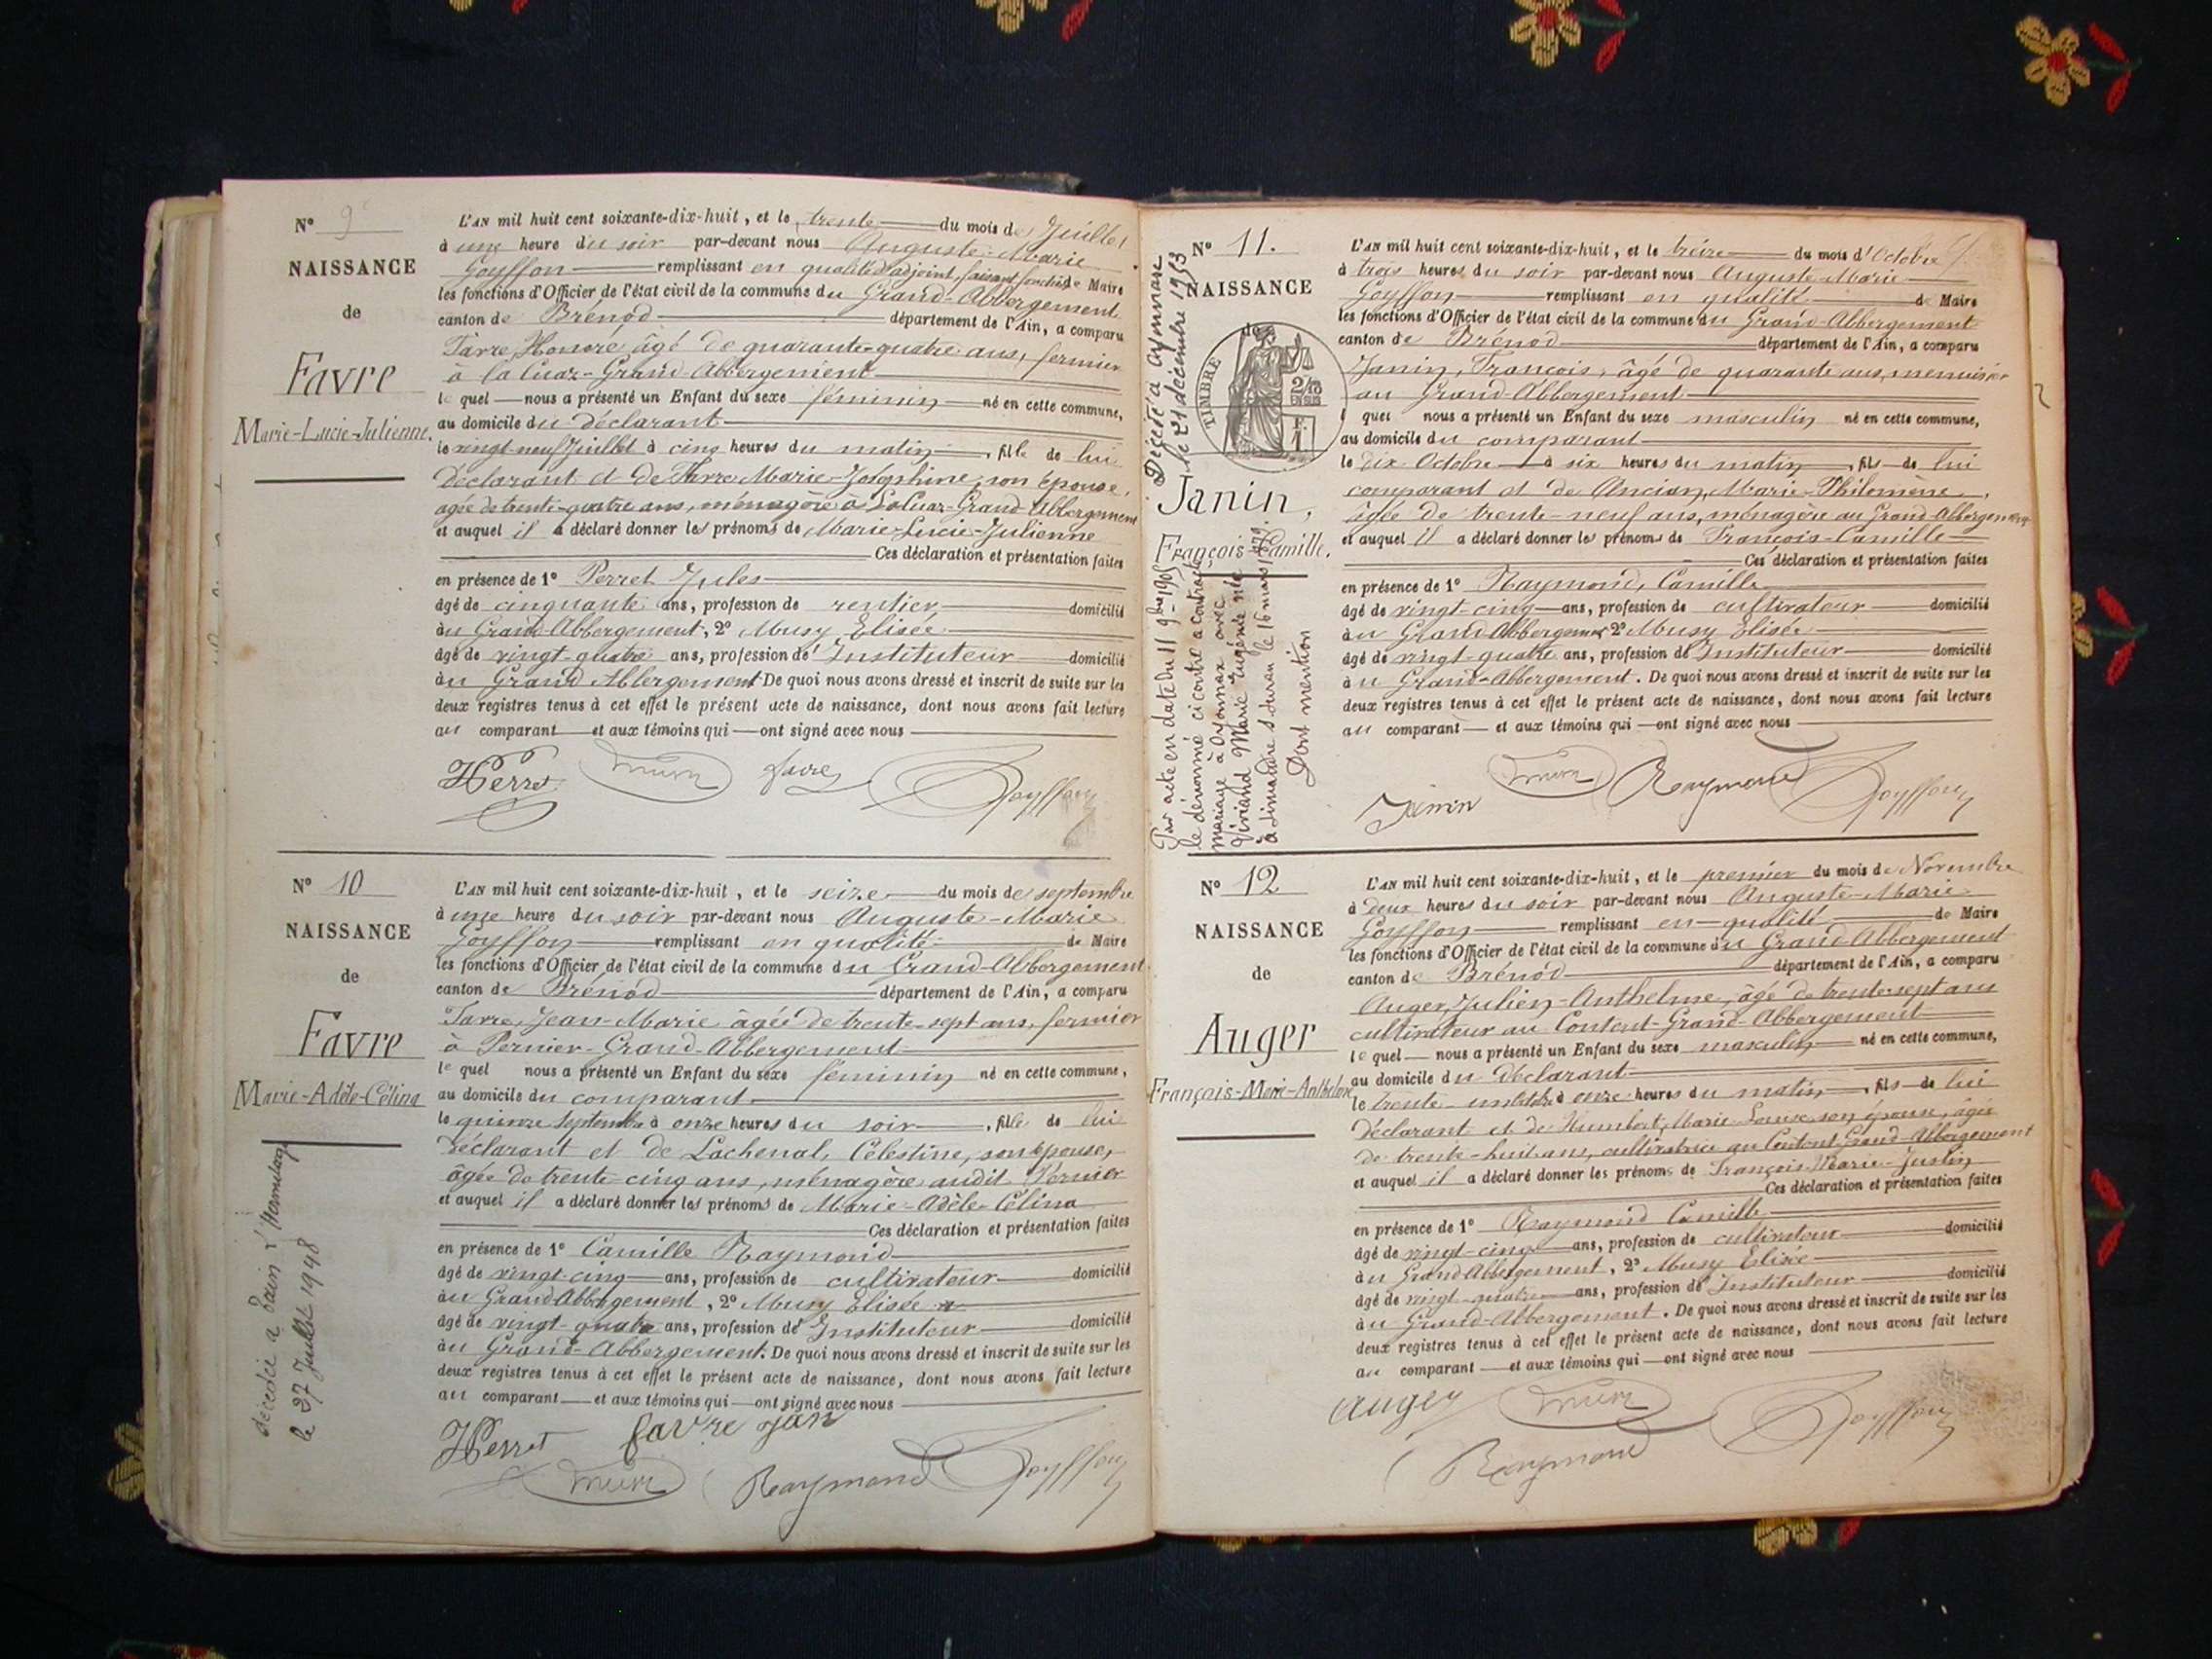 N° 9
NAISSANCE
de
Favre
Marie-Lucie-Julienne.
L'AN mil huit cent soixante-dix-huit, et le trente du mois de Juillet
à une heure du soir par-devant nous Auguste-Marie
Goyffon remplissant en qualité d'adjoint, faisant fonctions de Maire
les fonctions d'Officier de l'état civil de la commune du Grand-Abbergement
canton de Brénod département de l'Ain, a comparu
Favre, Honoré, âgé de quarante-quatre ans, fermier
à la Cuaz-Grand-Abbergement
lequel nous a présenté un Enfant du sexe féminin né en cette commune,
au domicile du déclarant
le vingt-neuf Juillet à cinq heures du matin, fille de lui
déclarant et de Favre Marie-Joséphine, son épouse,
agée de trente-quatre ans, ménagère à La Cuaz-Grand-Abbergement
et auquel il a déclaré donner les prénoms de Marie-Lucie-Julienne
Ces déclaration et présentation faites
en présence de 1° Perret Jules
âgé de cinquante ans, profession de rentier, domicilié
au Grand Abbergement, 2° Musy Elisée
âgé de vingt-quatre ans, profession d'Instituteur domicilié
au Grand Abbergement De quoi nous avons dressé et inscrit de suite sur les
deux registres tenus à cet effet le présent acte de naissance, dont nous avons fait lecture
au comparant et aux témoins qui ont signé avec nous
Perret Musy favre Goyffon
N° 10
NAISSANCE
de
Favre
Marie-Adèle-Célina
décédée à
le 27 Juillet 1948
L'AN mil huit cent soixante-dix-huit, et le seize du mois de septembre
à une heure du soir par-devant nous Auguste-Marie
Goyffon remplissant en qualité de Maire
les fonctions d'Officier de l'état civil de la commune du Grand-Abbergement
canton de Brénod département de l'Ain, a comparu
Favre, Jean-Marie âgée de trente-sept ans, fermier
à Pernier-Grand-Abbergement
lequel nous a présenté un Enfant du sexe féminin né en cette commune,
au domicile du comparant
le quinze Septembre à onze heures du soir, fille de lui
déclarant et de Lachenal, Célestine, son épouse,
âgée de trente-cinq ans, ménagère audit Pernier
et auquel il a déclaré donner les prénoms de Marie-Adèle-Célina
Ces déclaration et présentation faites
en présence de 1° Camille Raymond
âgé de vingt-cinq ans, profession de cultivateur domicilié
au Grand Abbergement, 2° Musy Elisée
âgé de vingt-quatre ans, profession d'Instituteur domicilié
au Grand-Abbergement. De quoi nous avons dressé et inscrit de suite sur les
deux registres tenus à cet effet le présent acte de naissance, dont nous avons fait lecture
au comparant et aux témoins qui ont signé avec nous
Perret favre jan
Musy Raymond Goyffon
N° 11.
NAISSANCE
de
TIMBRE
Décédé à Oyonnax
le 21 décembre 1953
Janin,
François-Camille.
Par acte en date du 11 9bre 1905
le dénommé ci contre a contracté
mariage à Oyonnax avec
Viviand Marie Eugénie née
à Simandre s/ Suran le 16 mars 1879.
Dont mention
L'AN mil huit cent soixante-dix-huit, et le treize du mois d'Octobre
à trois heures du soir par-devant nous Auguste-Marie
Goyffon remplissant en qualité de Maire
les fonctions d'Officier de l'état civil de la commune du Grand-Abbergement
canton de Brénod département de l'Ain, a comparu
Janin, François, âgé de quarante ans, menuisier
au Grand-Abbergement
quel nous a présenté un Enfant du sexe masculin né en cette commune,
au domicile du comparant
le dix Octobre à six heures du matin, fils de lui
comparant et de Ancian, Marie-Philomène,
âgée de trente-neuf ans, ménagère au Grand-Abbergement
et auquel il a déclaré donner les prénoms de François-Camille
Ces déclaration et présentation faites
en présence de 1° Raymond, Camille
âgé de vingt-cinq ans, profession de cultivateur domicilié
au Grand Abbergement 2° Musy Elisée
âgé de vingt-quatre ans, profession d'Instituteur domicilié
au Grand-Abbergement. De quoi nous avons dressé et inscrit de suite sur les
deux registres tenus à cet effet le présent acte de naissance, dont nous avons fait lecture
au comparant et aux témoins qui ont signé avec nous
Janin Musy Raymond Goyffon
N° 12
NAISSANCE
de
Auger
François-Marie-Anthelme
L'AN mil huit cent soixante-dix-huit, et le premier du mois de Novembre
à deux heures du soir par-devant nous Auguste-Marie
Goyffon remplissant en qualité de Maire
les fonctions d'Officier de l'état civil de la commune du Grand-Abbergement
canton de Brénod département de l'Ain, a comparu
Auger, Julien-Anthelme, âgé de trente-sept ans
cultivateur au Content-Grand-Abbergement
lequel nous a présenté un Enfant du sexe masculin né en cette commune,
au domicile du Déclarant
le trente-un octobre à onze heures du matin, fils de lui
déclarant et de Humbert, Marie-Louise son épouse, âgée
de trente-huit ans, cultivatrice au Content Grand-Abbergement
et auquel il a déclaré donner les prénoms de François-Marie-Justin
Ces déclaration et présentation faites
en présence de 1° Raymond Camille
âgé de vingt-cinq ans, profession de cultivateur domicilié
au Grand Abbergement, 2° Musy Elisée
âgé de vingt-quatre ans, profession d'Instituteur domicilié
au Grand-Abbergement. De quoi nous avons dressé et inscrit de suite sur les
deux registres tenus à cet effet le présent acte de naissance, dont nous avons fait lecture
au comparant et aux témoins qui ont signé avec nous
auger Musy Goyffon
Raymond